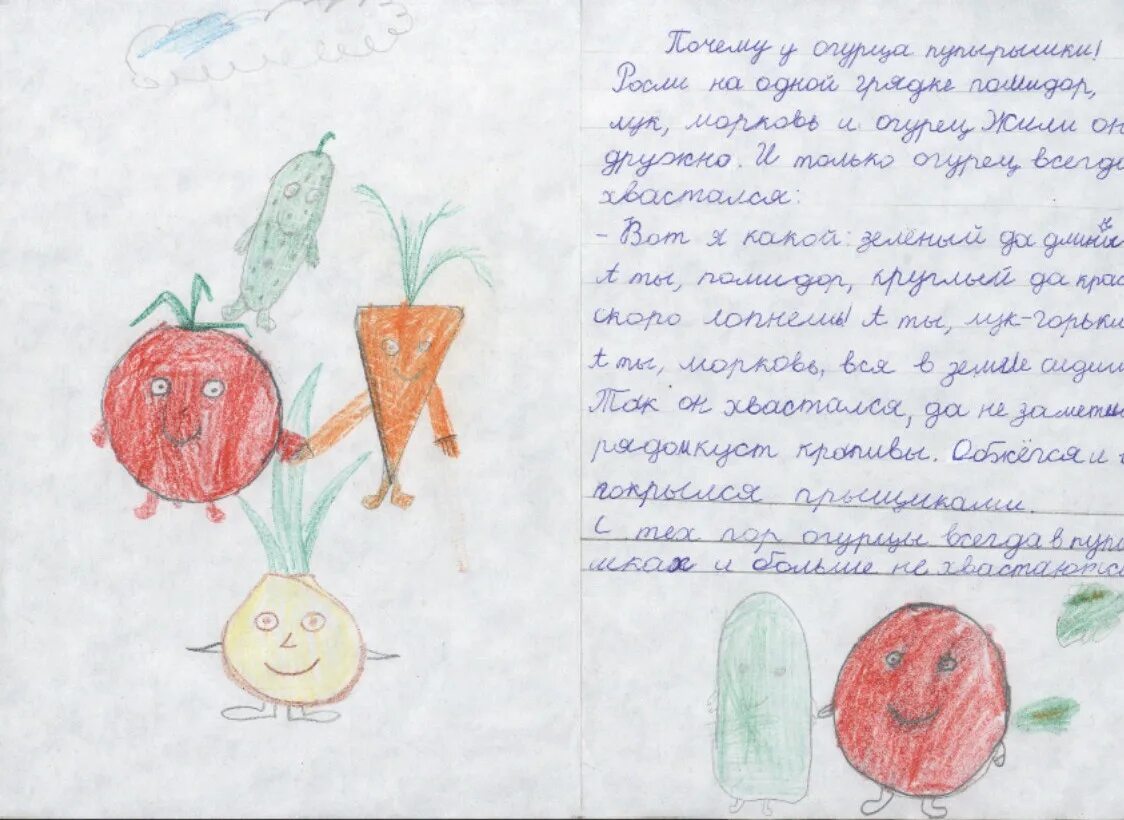 Почему у огурца пупырышки!
Росли на одной грядке помидор,
лук, морковь и огурец. Жили он
дружно. И только огурец всегда
хвастался:
- Вот я какой: зелёный да длинны
А ты, помидор, круглый да крас
скоро лопнешь! А ты, лук-горьки
А ты, морковь, вся в земле сиди
Так он хвастался, да не замети
рядомкуст крапивы. Обжёгся и
покрылся прыщиками.
С тех пор огурцы всегда в пупы
шках и больше не хвастаются